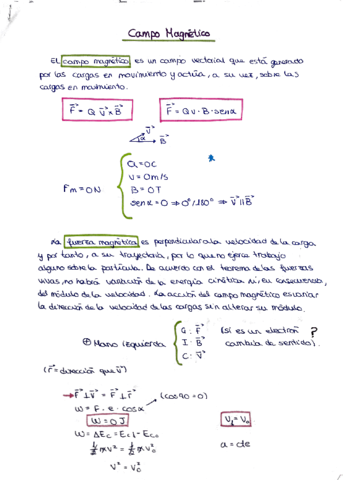 Campo Magnético
El campo magnético es un campo vectorial que está generado
por las cargas en movimiento y actúa, a su vez, sobre las
cargas en movimiento.
F⃗ = Q V⃗ x B⃗
F⃗ = Q V · B · senα
V⃗
α
B⃗
Fm = 0N
Q = 0C
V = 0m/s
B = 0T
senα = 0 ⇒ 0°/180° ⇒ V⃗ || B⃗
La fuerza magnética es perpendicular a la velocidad de la carga
y por tanto, a su trayectoria, por lo que no ejerce trabajo
alguno sobre la partícula. De acuerdo con el teorema de las fuerzas
vivas, no habrá variación de la energía cinética ni, en consecuencia,
del módulo de la velocidad. La acción del campo magnético es variar
la dirección de la velocidad de las cargas sin alterar su módulo.
Mano izquierda
G: F⃗
I: B⃗
C: V⃗
(si es un electrón
cambia de sentido). ?
(r⃗ = dirección que V⃗)
→ F⃗ ⊥ V⃗ = F⃗ ⊥ r⃗
W = F · e · cosα → (cos90 = 0)
W = 0 J
W = ΔEc = Ec1 - Ec0
½ m V² = ½ m V₀²
V² = V₀²
V₁ = V₀
a = cte